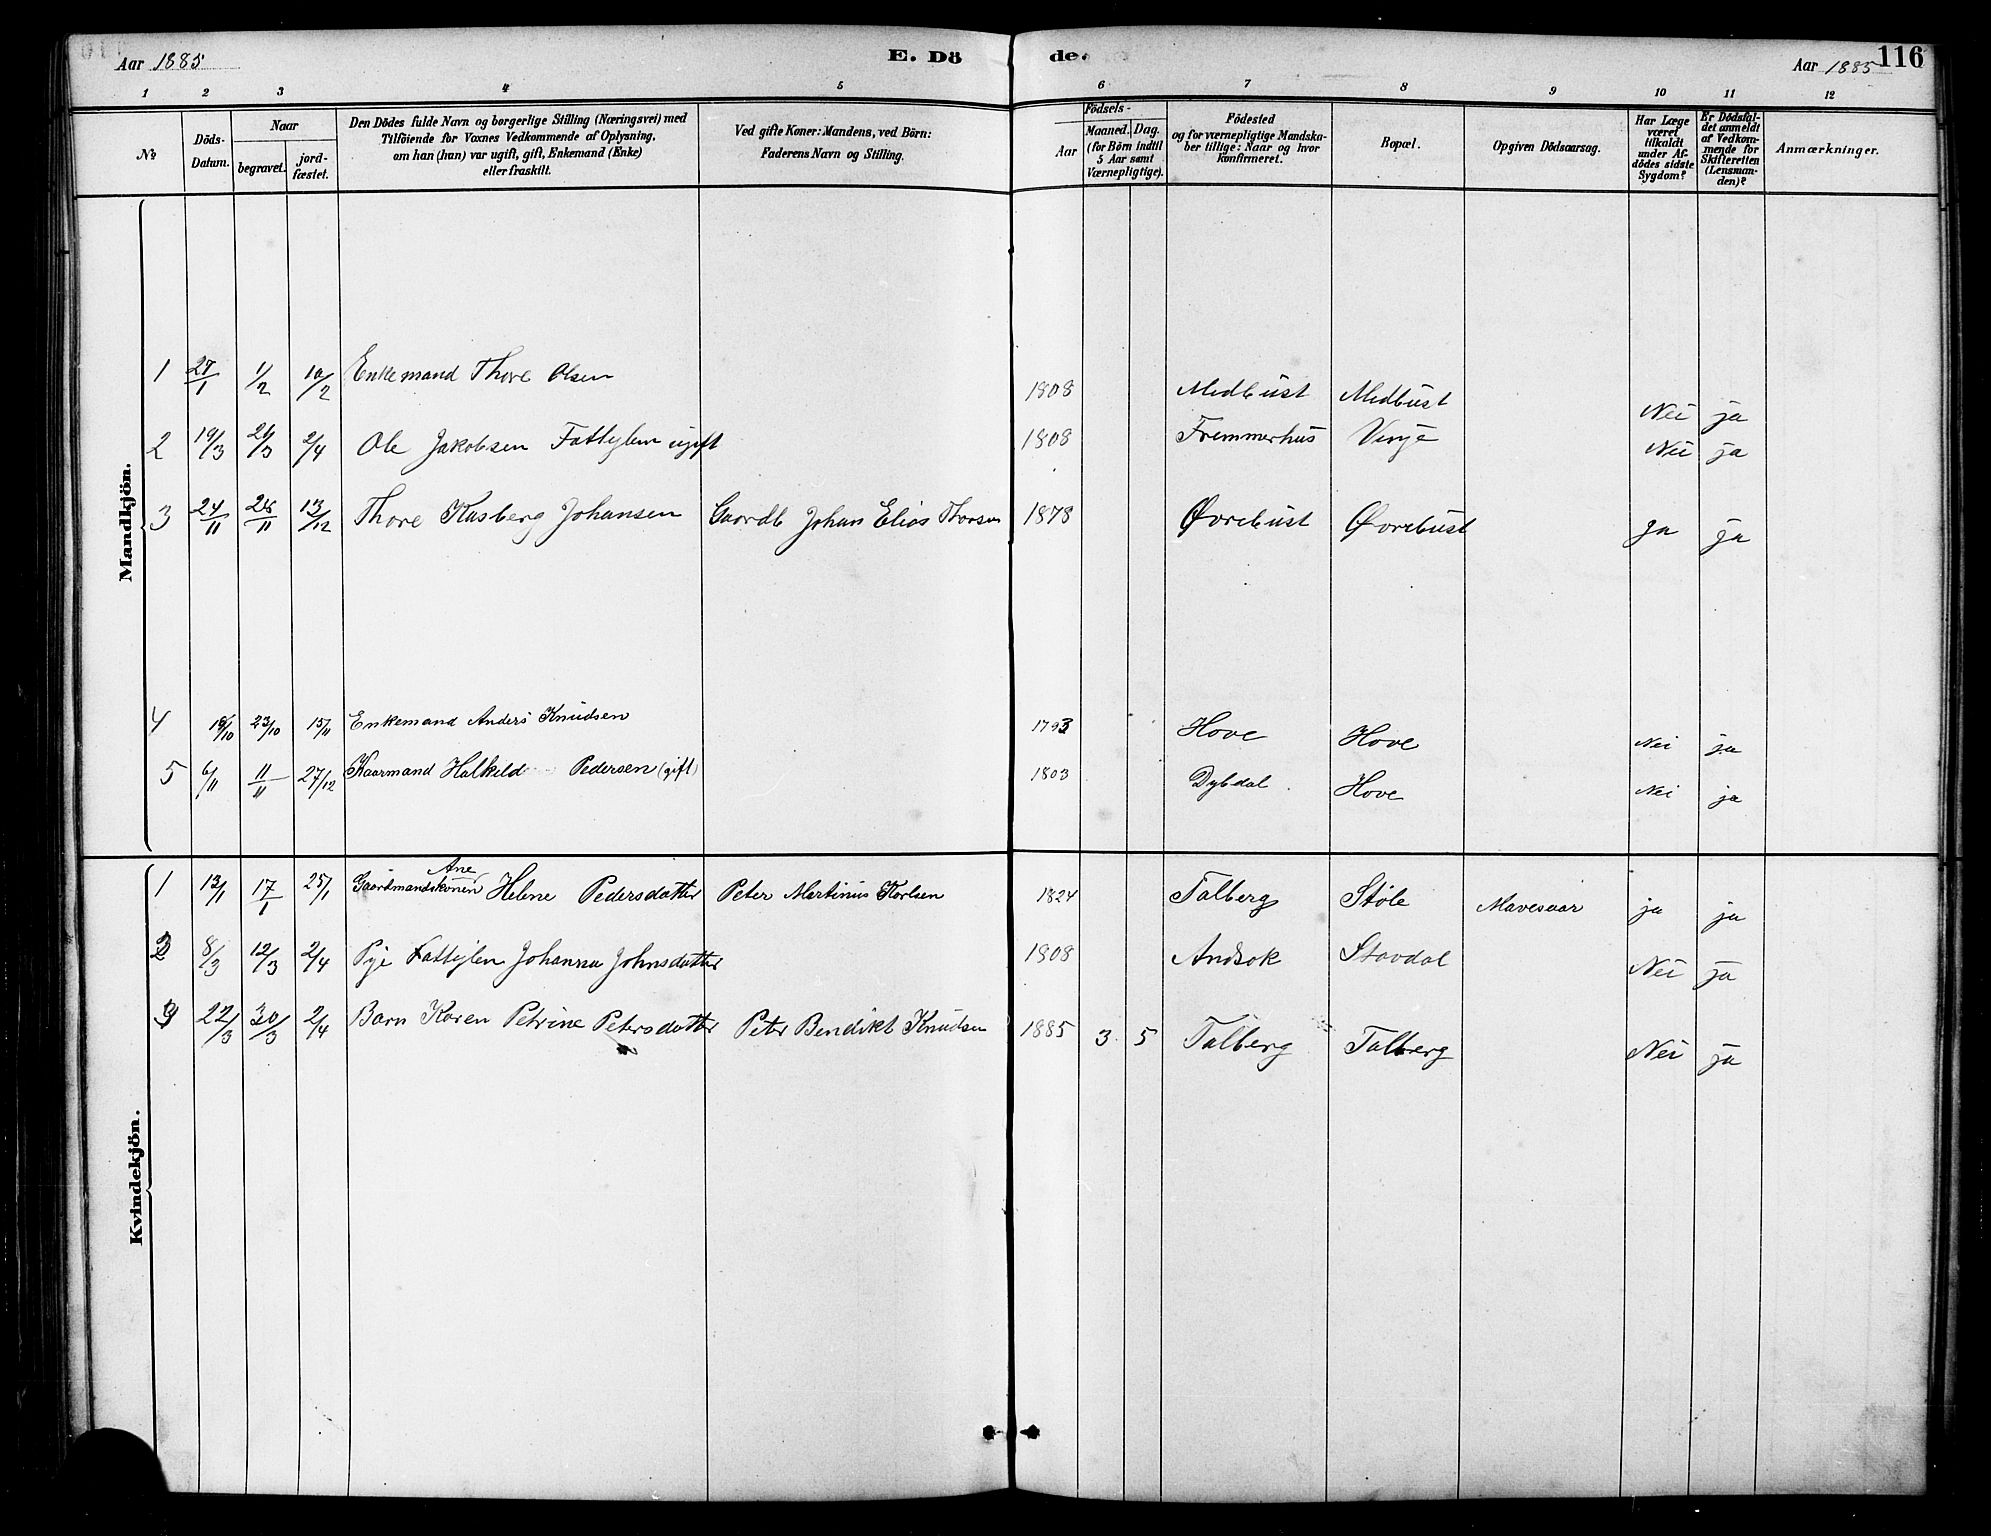 Aar 1885 E. Dö de. Aar 1885 116
1 2 3 4 5 6 7 8 9 10 11 12
No
Döds-Datum.
Naar
begravet.
jord-fæstet.
Den Dödes fulde Navn og borgerlige Stilling (Næringsvei) med
Tilföiende for Voxnes Vedkommende af Oplysning,
om han (hun) var ugift, gift, Enkemand (Enke)
eller fraskilt.
Ved gifte Koner: Mandens, ved Börn:
Faderens Navn og Stilling.
Födsels-
Aar
Maaned. Dag.
(for Börn indtil
5 Aar samt
Værnepligtige).
Födested
og for værnepligtige Mandska-
ber tillige: Naar og hvor
konfirmeret.
Bopæl.
Opgiven Dödsaarsag.
Har Læge
været
tilkaldt
under Af-
dödes sidste
Sygdom?
Er Dödsfal-
det anmeldt
af Vedkom-
mende for
Skifteretten
(Lensman-
den)?
Anmærkninger.
Mandkjön.
1 27/1 1/2 10/2 Enkemand Thore Olsen 1808 Medbust Medbust Nei ja
2 19/3 26/3 2/4 Ole Jakobsen Fattylem ugift 1808 Fremmerhus Vinje Nei ja
3 24/11 28/11 13/12 Thore Kasberg Johansen Gaardb Johan Elias Thorsen 1878 Øvrebust Øvrebust Ja ja
4 19/10 23/10 15/11 Enkemand Anders Knudsen 1793 Hove Hove Nei ja
5 6/11 11/11 27/12 Kaarmand Halkeld Pedersen (gift) 1803 Dybdal Hove Nei ja
Kvindekjön.
1 13/1 17/1 25/1 Gaardmandskonen Ane Helene Pedersdatter Peter Martinus Karlsen 1824 Talberg Støle Mavesaar ja ja
2 8/3 12/3 2/4 Pige Fattylen Johanna Johnsdatter 1808 Andsok Stavdal Nei ja
3 22/3 30/3 2/4 Barn Karen Petrine Petersdatter Peter Bendikt Knudsen 1885 3 5 Talberg Talberg Nei ja